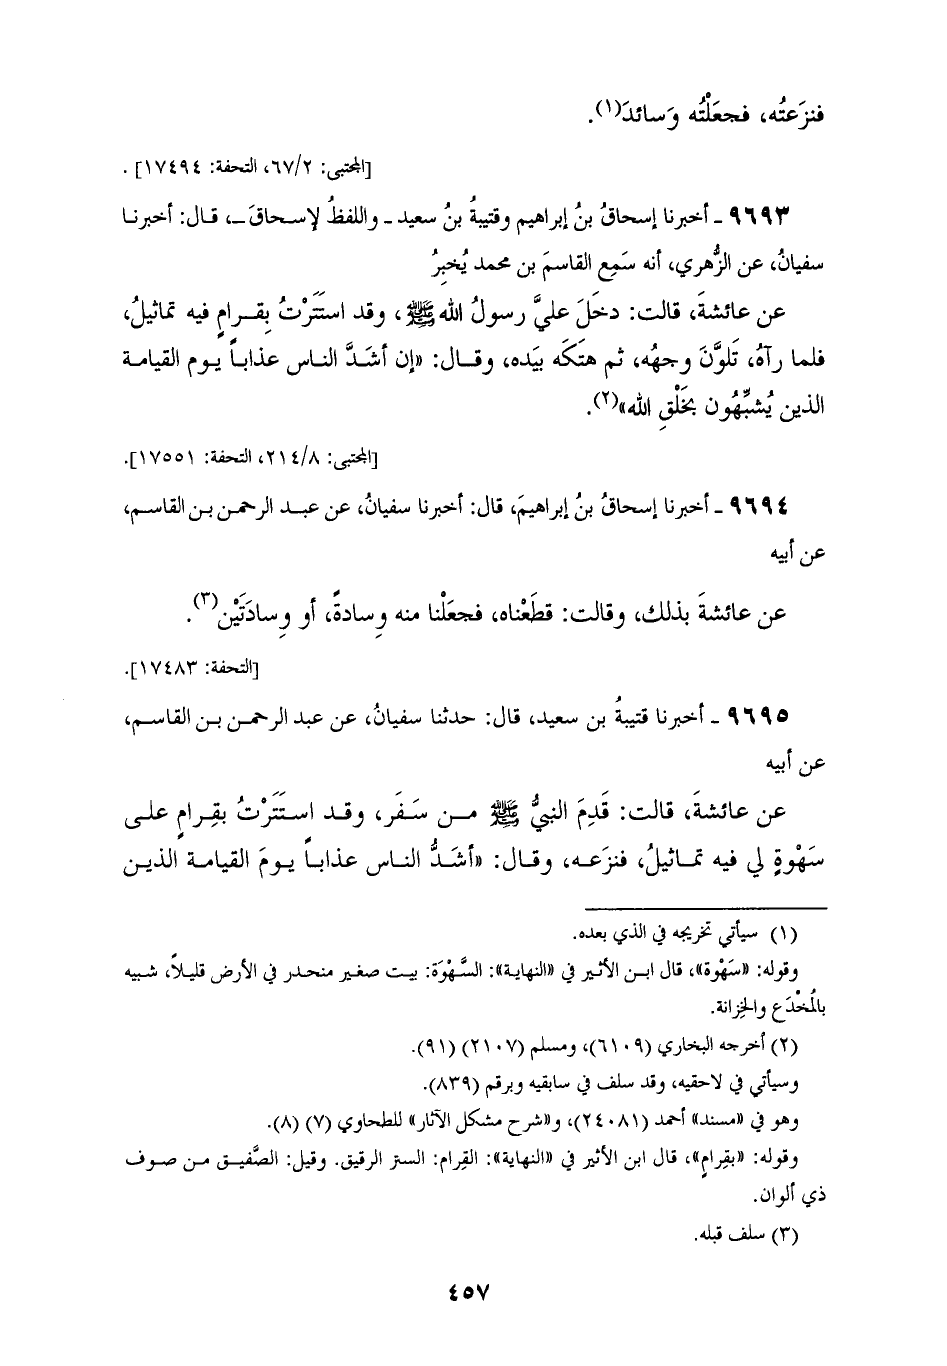 فنزَعتُه، فجعَلْتُه وَسائدَ(١).
[المجتبى: ٦٧/٢، التحفة: ١٧٤٩٤] .
٩٦٩٣ ـ أخبرنا إسحاقُ بنُ إبراهيم وقتيبةُ بنُ سعيد ـ واللفظُ لإسحاقَ ـ، قال: أخبرنا
سفيانُ، عن الزُّهري، أنه سَمِع القاسمَ بن محمد يُخبِرُ
عن عائشةَ، قالت: دخَلَ عليَّ رسولُ الله ﷺ، وقد استَتَرْتُ بِقرامٍ فيه تماثيلُ،
فلما رآهُ، تَلوَّنَ وجهُه، ثم هتَكَه بيَده، وقال: «إن أشدَّ الناس عذاباً يوم القيامة
الذين يُشبِّهُون بخَلْقِ الله»(٢).
[المجتبى: ٢١٤/٨، التحفة: ١٧٥٥١].
٩٦٩٤ ـ أخبرنا إسحاقُ بنُ إبراهيمَ، قال: أخبرنا سفيانُ، عن عبد الرحمن بن القاسم،
عن أبيه
عن عائشةَ بذلك، وقالت: قطَعْناه، فجعَلْنا منه وِسادةً، أو وِسادَتَيْن(٣).
[التحفة: ١٧٤٨٣].
٩٦٩٥ ـ أخبرنا قتيبةُ بن سعيد، قال: حدثنا سفيانُ، عن عبد الرحمن بن القاسم،
عن أبيه
عن عائشةَ، قالت: قَدِمَ النبيُّ ﷺ من سَفَر، وقد استَتَرْتُ بقِرامٍ على
سَهْوةٍ لي فيه تماثيلُ، فنزَعه، وقال: «أشدُّ الناس عذاباً يومَ القيامة الذين
(١) سيأتي تخريجه في الذي بعده.
وقوله: «سَهْوة»، قال ابن الأثير في «النهاية»: السَّهْوَة: بيت صغير منحدر في الأرض قليلاً، شبيه
بالمُخْدَع والخِزانة.
(٢) أخرجه البخاري (٦١٠٩)، ومسلم (٢١٠٧) (٩١).
وسيأتي في لاحقيه، وقد سلف في سابقيه وبرقم (٨٣٩).
وهو في «مسند» أحمد (٢٤٠٨١)، و«شرح مشكل الآثار» للطحاوي (٧) (٨).
وقوله: «بقِرامٍ»، قال ابن الأثير في «النهاية»: القِرام: الستر الرقيق. وقيل: الصَّفيق من صوف
ذي ألوان.
(٣) سلف قبله.
٤٥٧